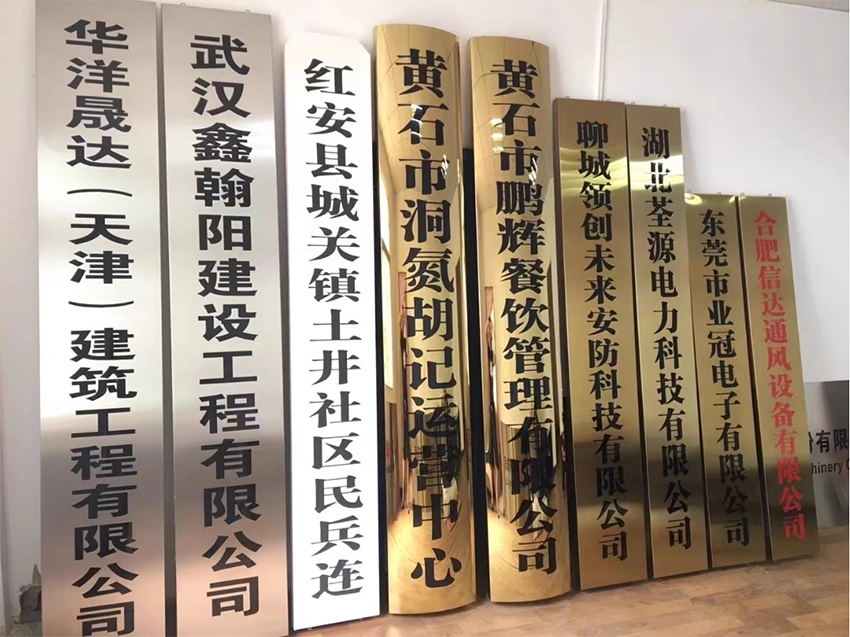 华洋晟达（天津）建筑工程有限公司
武汉鑫翰阳建设工程有限公司
红安县城关镇土井社区民兵连
黄石市洞氮胡记运营中心
黄石市鹏辉餐饮管理有限公司
聊城领创未来安防科技有限公司
湖北荃源电力科技有限公司
东莞市业冠电子有限公司
合肥信达通风设备有限公司
份有限
hinery C